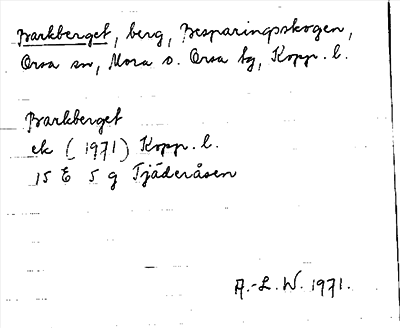 Barkberget, berg, Besparingsskogen,
Orsa sn, Mora o. Orsa tg, Kopp. l.
Barkberget
ek (1971) Kopp. l.
15 E 5 g Tjäderåsen
A.-L. W. 1971.